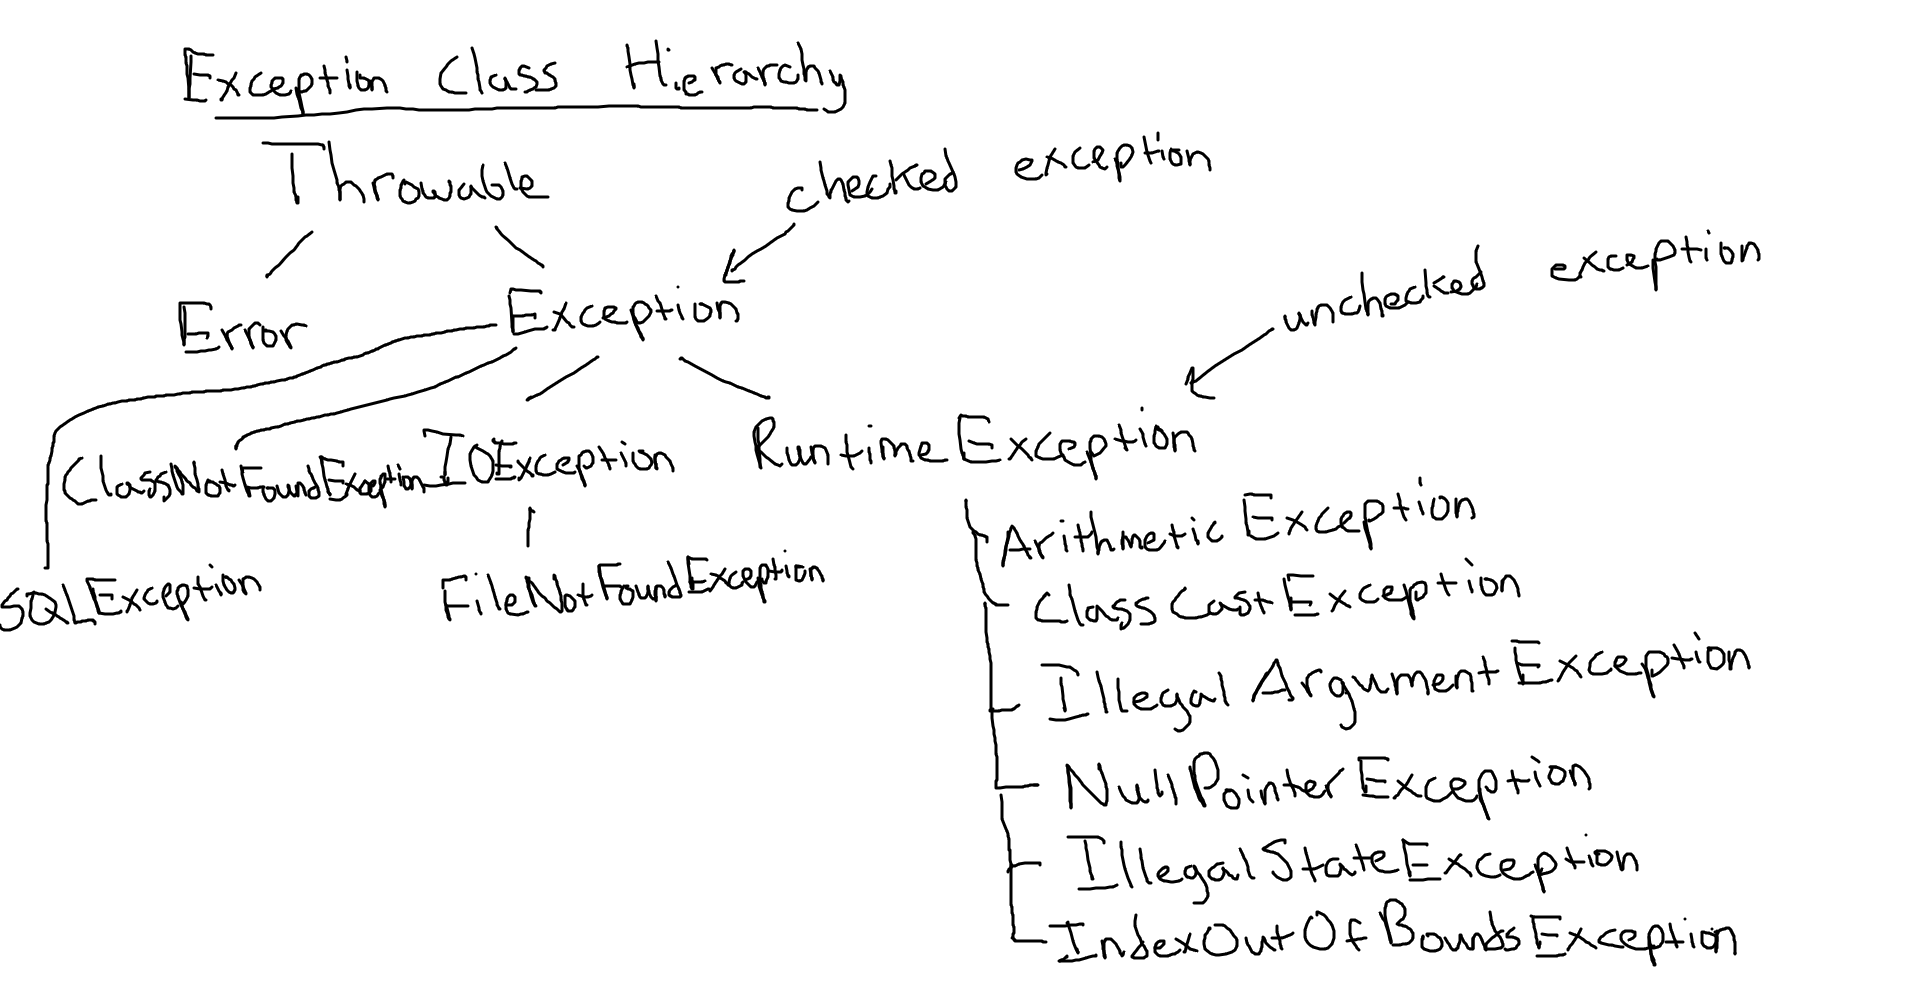 Exception Class Hierarchy
Throwable
checked exception
unchecked exception
Error
Exception
ClassNotFoundException
IOException
RuntimeException
SQLException
FileNotFoundException
Arithmetic Exception
Class Cast Exception
Illegal Argument Exception
NullPointerException
IllegalStateException
IndexOutOfBoundsException